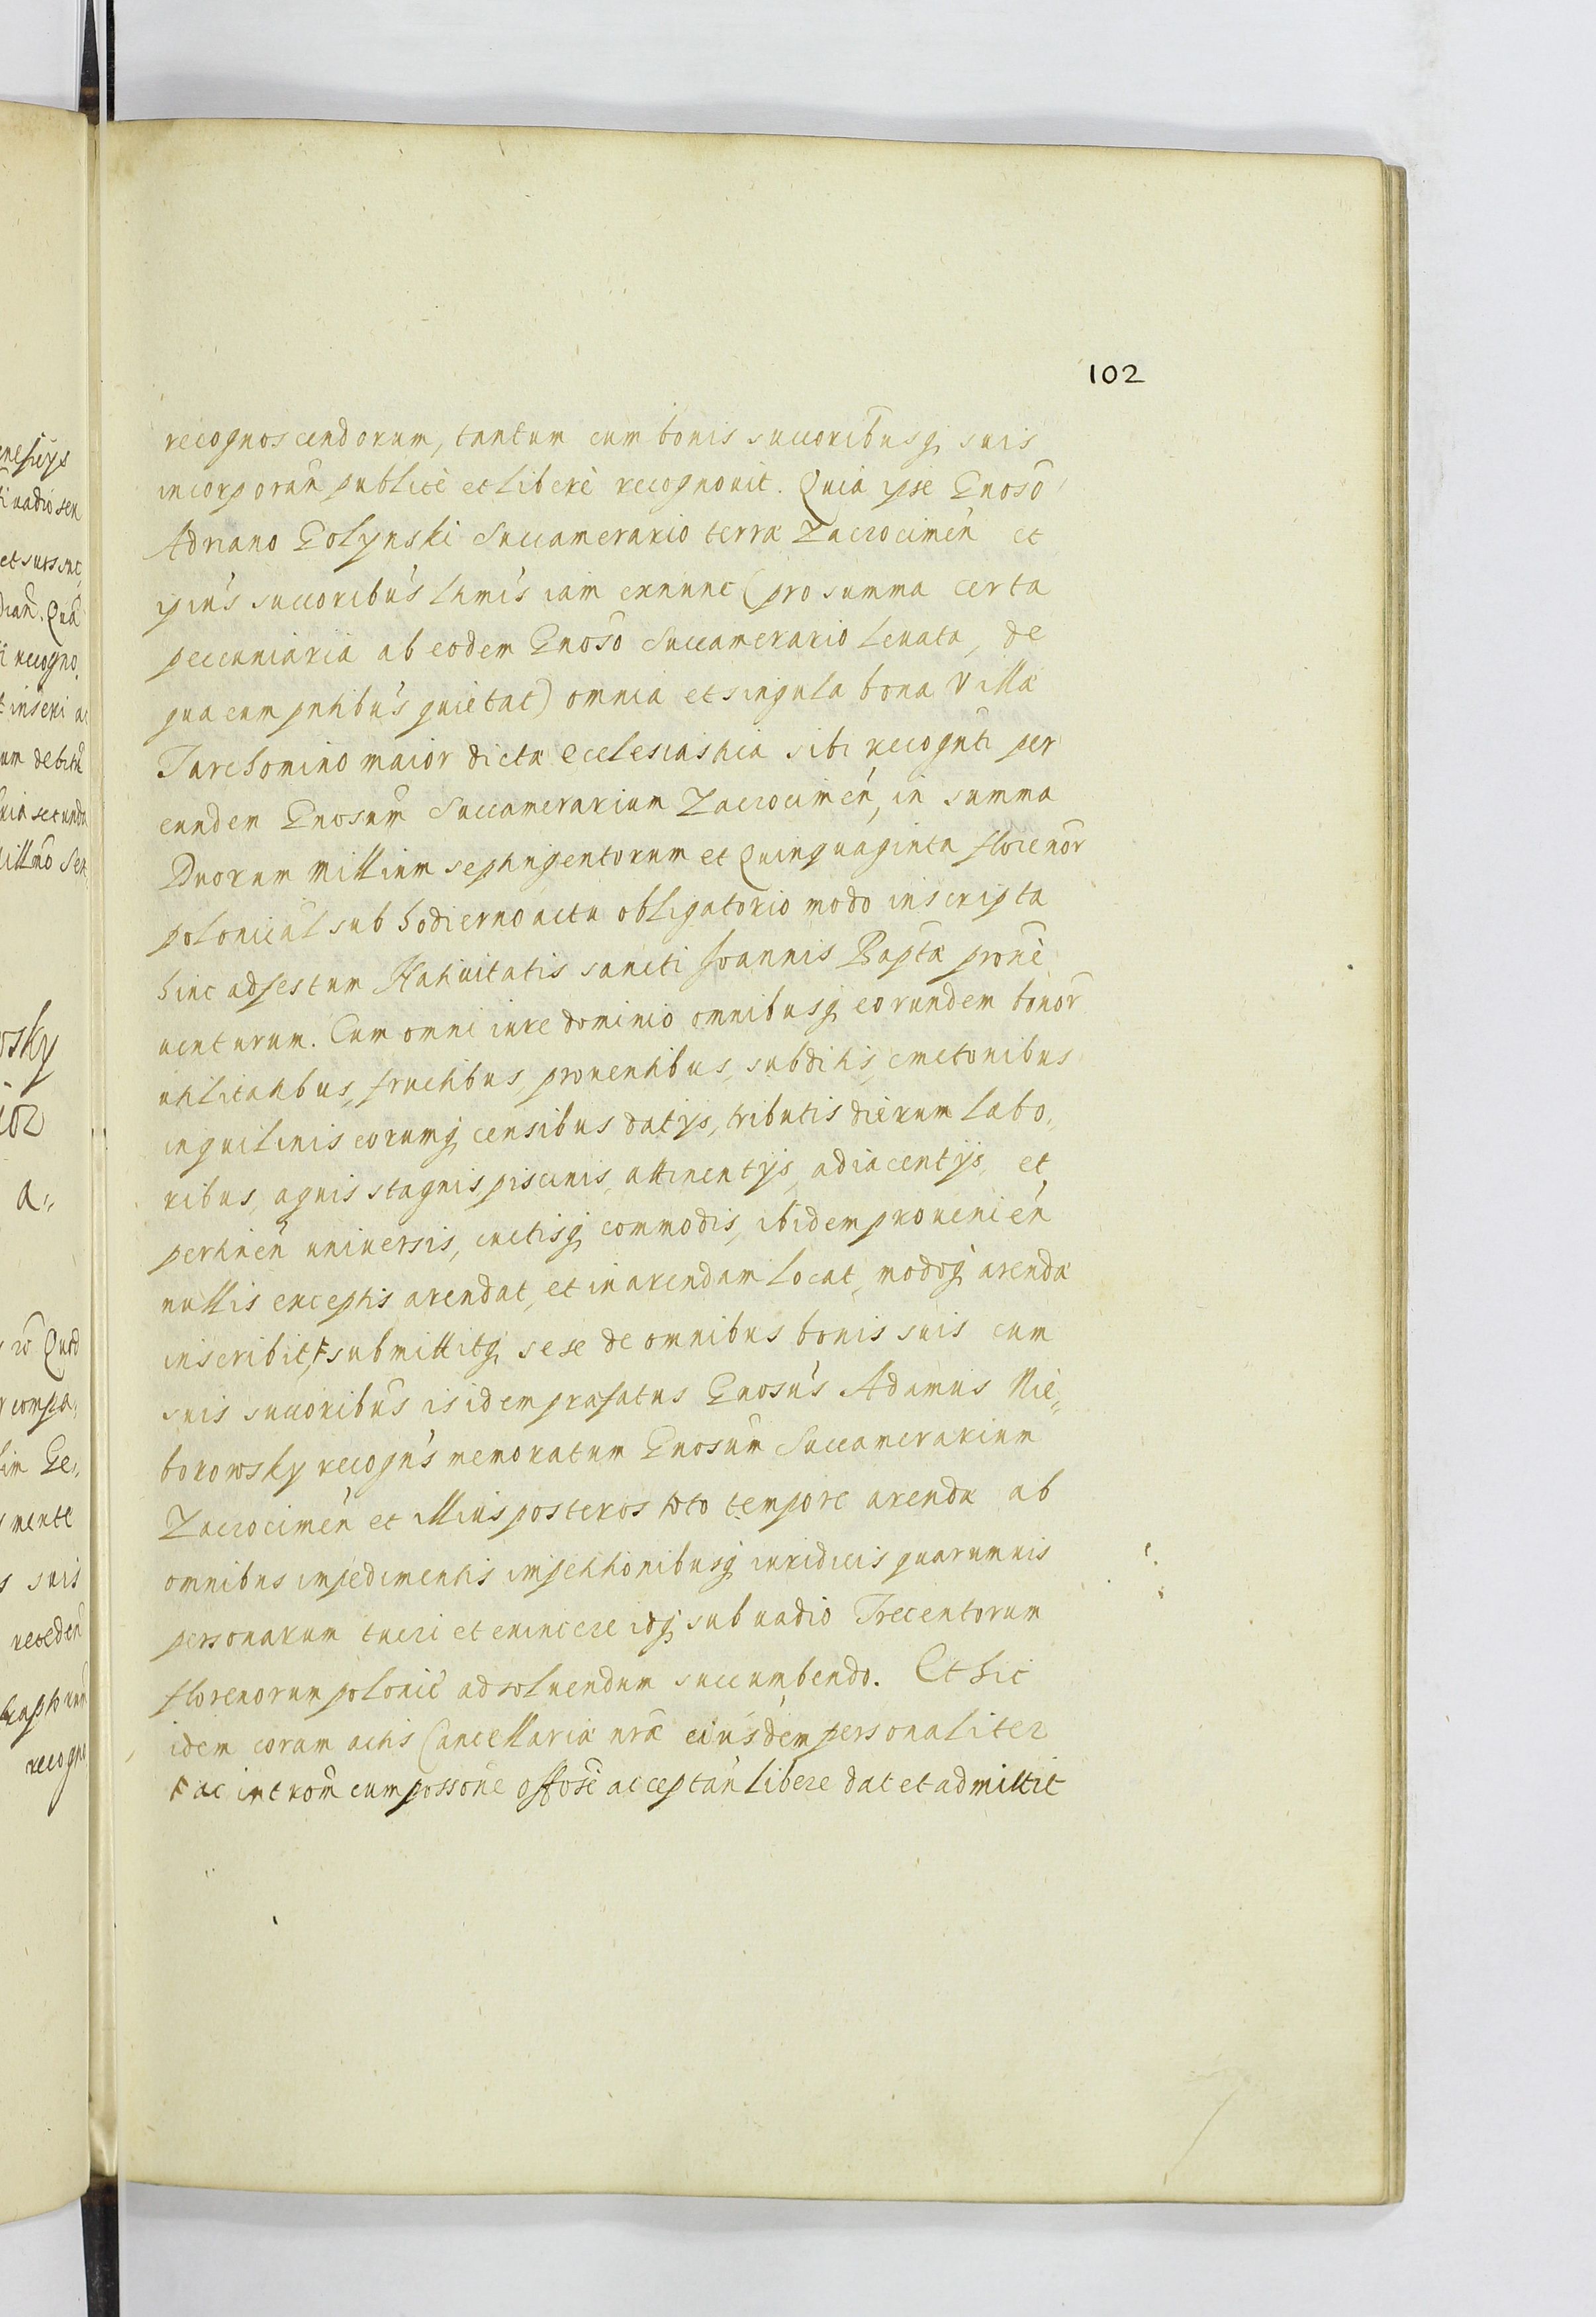 102
recognoscendorum, tantum cum bonis succoribusq suis
incorporañ publicè et liberè recognouit. Quia ipse Gnoso
Adriano Golynski Succamerario terræ Zacrocimeñ et
ipius succoribus lttmis iam exnunc (pro summa certa
peccuniaria ab eodem Gnoso Succamerario leuata, de
qua eum pntibus quietat) omnia et singula bona Villæ
Tarchomino maior dictæ ecclesiastica sibi recognti per
eundem Gnosum Succamerarium Zacrocimeñ, in summa
Duorum Millium septingentorum et Quinquaginta florenor
polonical sub hodierno actu obligatorio modo inscripta
hinc ad festum Natiuitatis sancti Joannis Baptæ proxè
uenturum. Cum omni iure dominio omnibusq eorundem bonor
utilitatibus, fructibus, prouentibus, subditis, cmetonibus
inquilinis eorumq censibus datijs, tributis dierum labo„
ribus, aquis stagnis, piscinis, attinentijs, adiacentijs, et
pertineñ uniuersis, cuctisq commodis, ibidem prouenieñ
nullis exceptis arendat, et in arendam locat, modoq arendæ
inscribit, submittitq sese de omnibus bonis suis cum
suis succoribus isidem præfatus Gnosus Adamus Nie„
borowsky recogns memoratum Gnosum Succamerarium
Zacrocimeñ et illius posteros toto tempore arendæ ab
omnibus impedimentis impetitionibusq iuridicis quarumuis
personarum tueri et euincere idq sub uadio Trecentorum
florenorum polonic ad soluendum succumbendo. Et hic
idem coram actis Cancellariæ nræ eiusdem personaliter
ac introm cum possone offose acceptañ libere dat et admittit